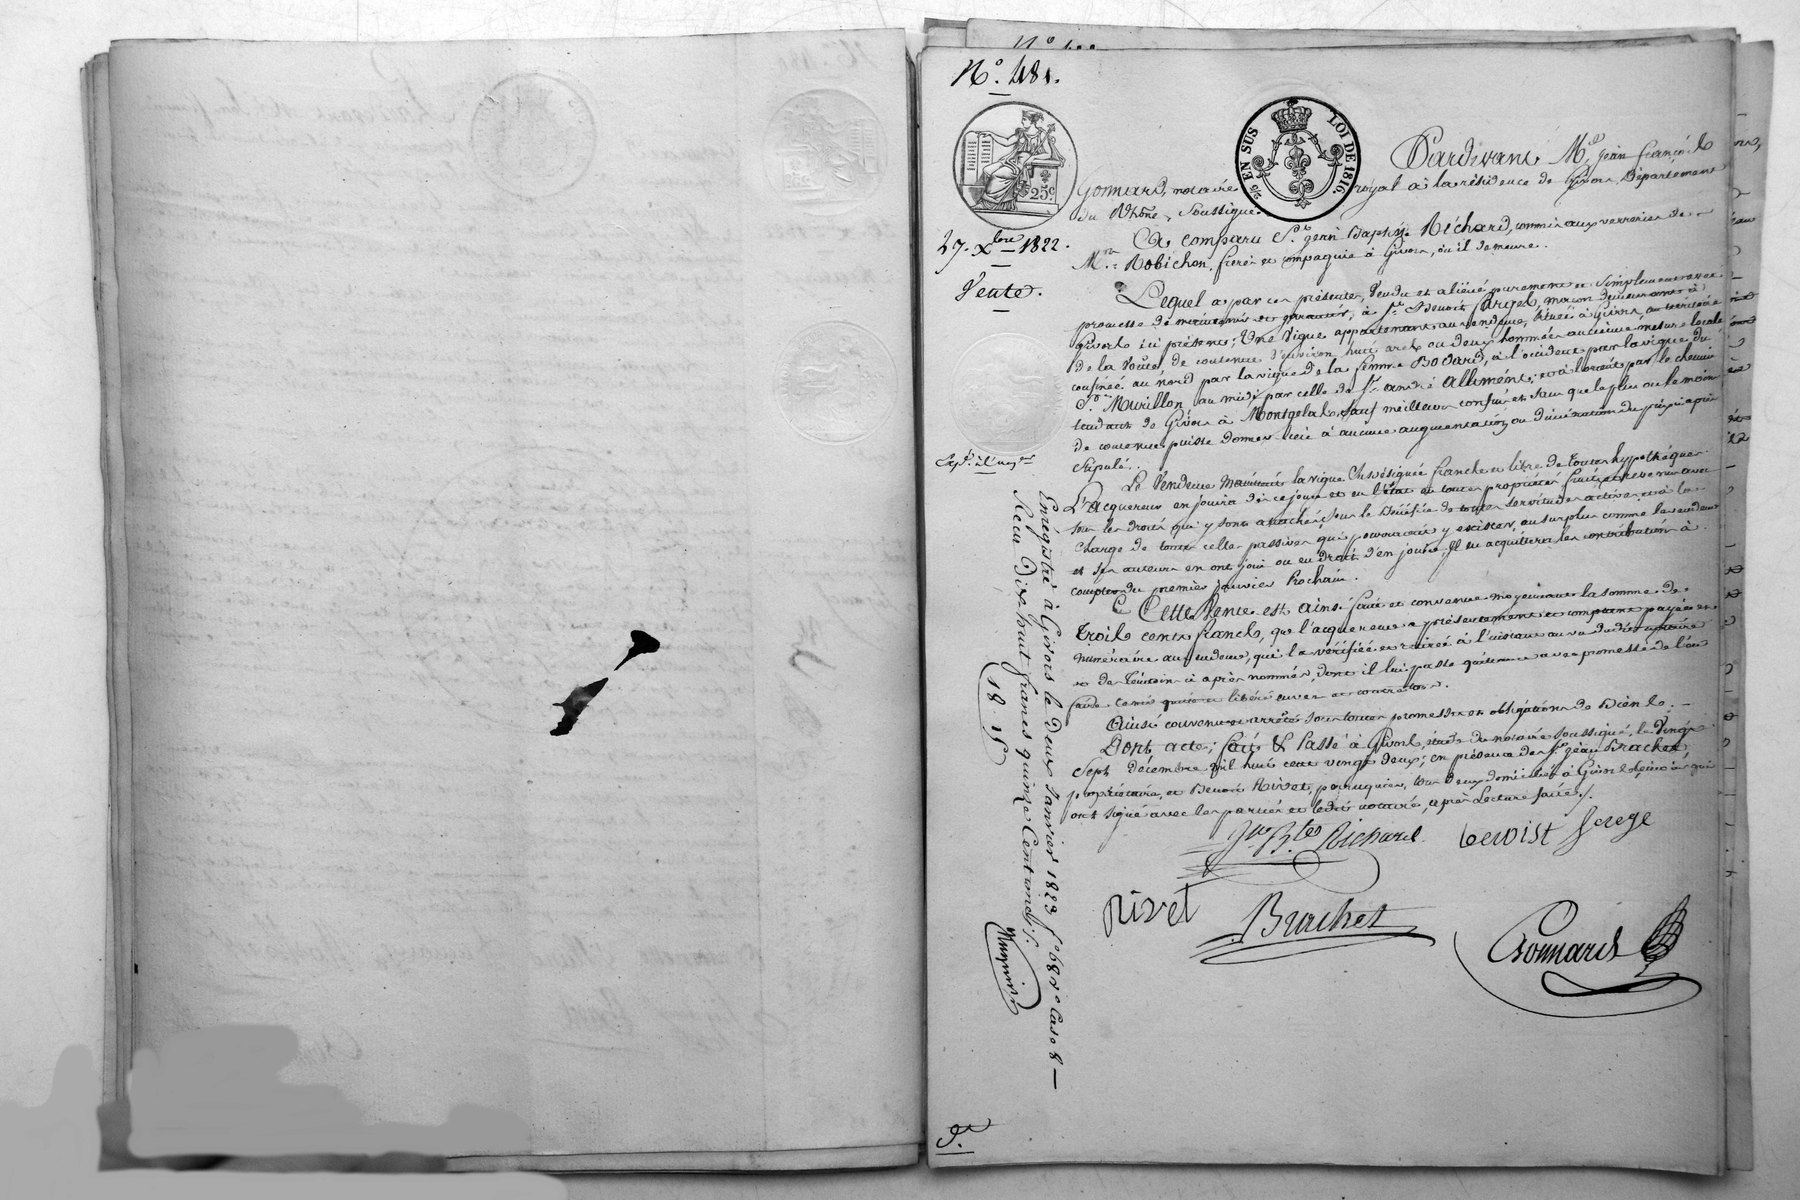 N.º 481.
25.c
2/0 EN SUS LOI DE 1816.
27. Xbre 1822.
Vente.
Pardevant M.e jean françois
Gonnard, notaire royal à la résidence de Givors, Département
du Rhône, Soussigné.
A comparu S.r jean Baptiste Richard, commis aux verreries de
M.rs Robichon, frères et compagnie à Givors, où il demeure.
Lequel a par ces présentes, Vendu et aliéné purement et simplement avec
promesse de maintenir et garantir, à S.r Benoit maçon demeurant à
Givors ici présent; Une Vigne appartenant au vendeur, située à Givors, au territoire
de la de contenue d'environ huit ares ou deux hommées ancienne mesure locale
confinée au nord par la vigne de la femme Bodard, à l'occident par la vigne du
S.r Murillon, au midi par celle de S.r andré allimént; et à l'orient par le chemin
tendant de Givors à Montgelas, sauf meilleurs confins et sans que le plus ou le moins
de contenue puisse donner lieu à aucune augmentation ou diminution du prix ci après
stipulé.
Le Vendeur maintient la vigne franche et libre de toutes hypothèques.
L'acquéreur en jouira de ce jour et en l'état en toute propriété fruits et revenus avec
tous les droits qui y sont attachés, sous le bénéfice de toutes servitudes actives et à la
charge de toutes celles passives qui pourraient y exister, au surplus comme le vendeur
et ses auteurs en ont joui ou eu droit d'en jouir; Il en acquittera les contributions à
compter du premier janvier Prochain.
Cette Vente est ainsi faite et convenue moyennant la somme de
trois cents francs, que l'acquéreur a présentement et comptant payée en
numéraire au vendeur, qui l'a vérifiée et retirée à l'instant au vu dudit notaire
et des témoins ci après nommés, dont il lui passe quittance avec promesse de l'en
faire tenir quitte et libéré envers et contre tous.
Ainsi convenu et arrêté sous toutes promesses et obligations de Biens.
Dont acte; fait & Passé à Givors, étude du notaire soussigné, le Vingt
Sept décembre mil huit cent vingt deux; en présence de S.rs jean Brachet,
propriétaire, et Benoit Rivet, perruquier, tous deux domiciliés à Givors témoins qui
ont signé avec les parties et ledit notaire, après Lecture faite./.
Jn Bte Richard
benoist
Rivet
Brachet
Gonnard
Enrégistré à Givors le Deux Janvier 1823 f.o 68 v.o Case 8
Reçu Dix huit francs quinze Cent.
18 15